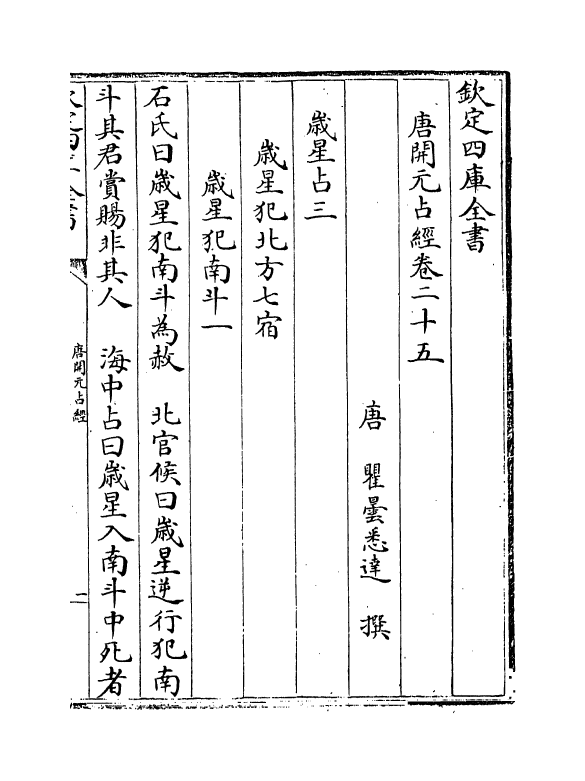 欽定四庫全書
唐開元占經卷二十五
唐 瞿曇悉達 撰
歲星占三
歲星犯北方七宿
歲星犯南斗一
石氏曰歲星犯南斗為赦 北官候曰歲星逆行犯南
斗其君賞賜非其人 海中占曰歲星入南斗中死者
欽定四庫全書
唐開元占經